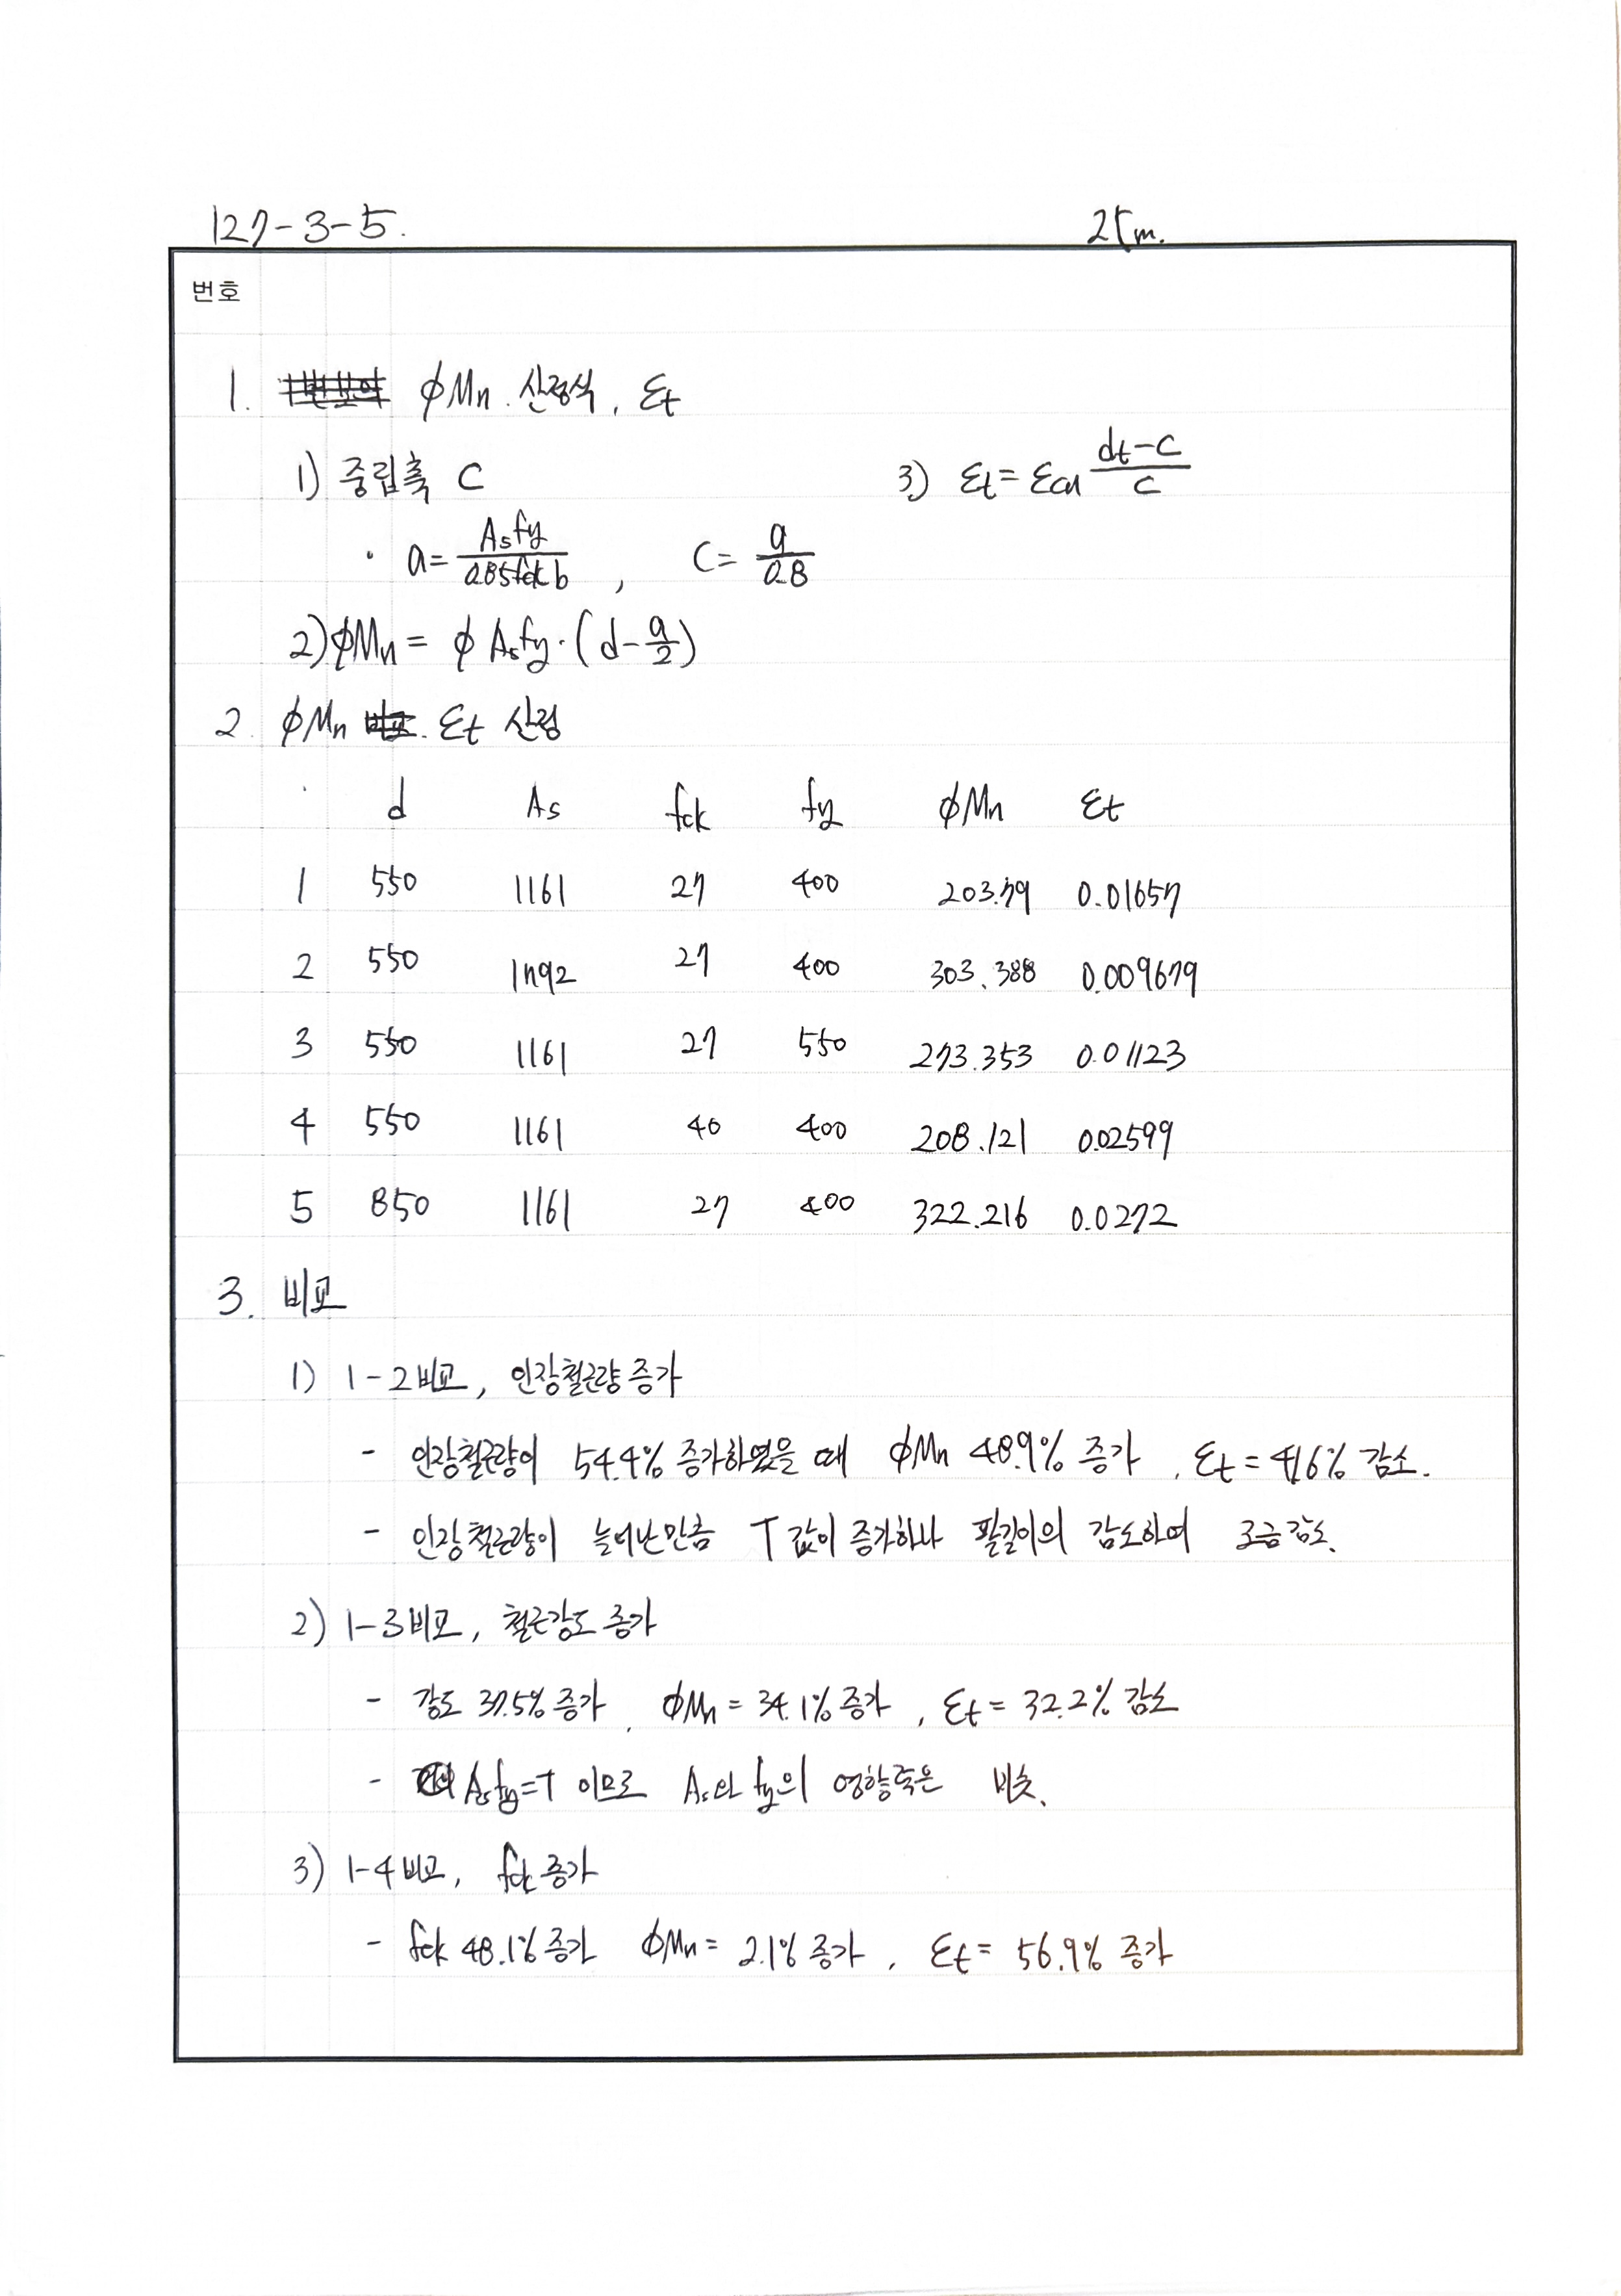 127-3-5. 25m.
번호
1. ϕMn 산정식, εt
1) 중립축 C
3) εt = εcu (dt-c)/c
· a = Asfy/(0.85fck b) , C = a/0.8
2) ϕMn = ϕ Asfy·(d-a/2)
2. ϕMn. εt 산정
d As fck fy ϕMn εt
1 550 1161 27 400 203.79 0.01657
2 550 1792 27 400 303.388 0.009679
3 550 1161 27 550 273.353 0.01123
4 550 1161 40 400 208.121 0.02599
5 850 1161 27 400 322.216 0.0272
3. 비교
1) 1-2 비교, 인장철근량 증가
- 인장철근량이 54.4% 증가하였을 때 ϕMn 48.9% 증가, εt = 41.6% 감소.
- 인장철근량이 늘어난만큼 T값이 증가하나 팔길이의 감소하여 조금감소.
2) 1-3 비교, 철근강도 증가
- 강도 37.5% 증가, ϕMn = 34.1% 증가, εt = 32.2% 감소
- Asfy=T 이므로 As와 fy의 영향력은 비슷.
3) 1-4 비교, fck 증가
- fck 48.1% 증가 ϕMn = 2.1% 증가, εt = 56.9% 증가